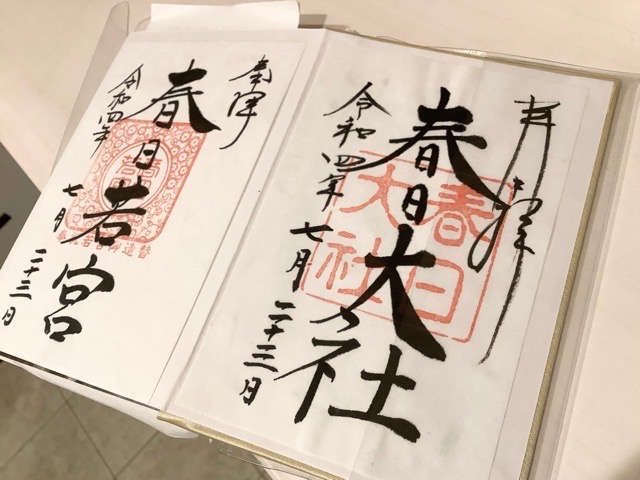 奉拝
春日大社
春日大社
令和四年七月二十三日
奉拝
春日若宮
春日若宮御造替
令和四年七月二十三日